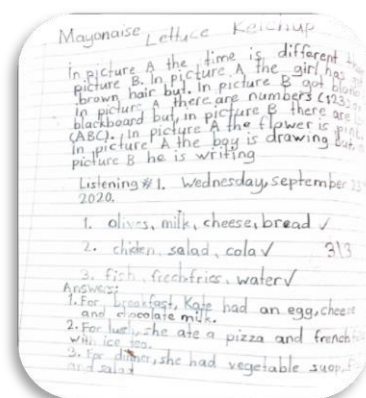 Mayonaise Lettuce Ketchup
In picture A the time is different
picture B. In picture A the girl has
brown hair but. In picture B got
In picture A there are numbers (123)
blackboard but, in picture B there are
(ABC). In picture A the flower is
In picture A the boy is drawing but
picture B he is writing
Listening #1. Wednesday, September
2020.
1. olives, milk, cheese, bread ✓
2. chiden, salad, cola ✓ 3/3
3. fish, frechfries, water ✓
Answers:
1. For breakfast, Kate had an egg, cheese
and chocolate milk.
2. For luch, she ate a pizza and french
with ice tea.
3. For dinner, she had vegetable suop,
and salad